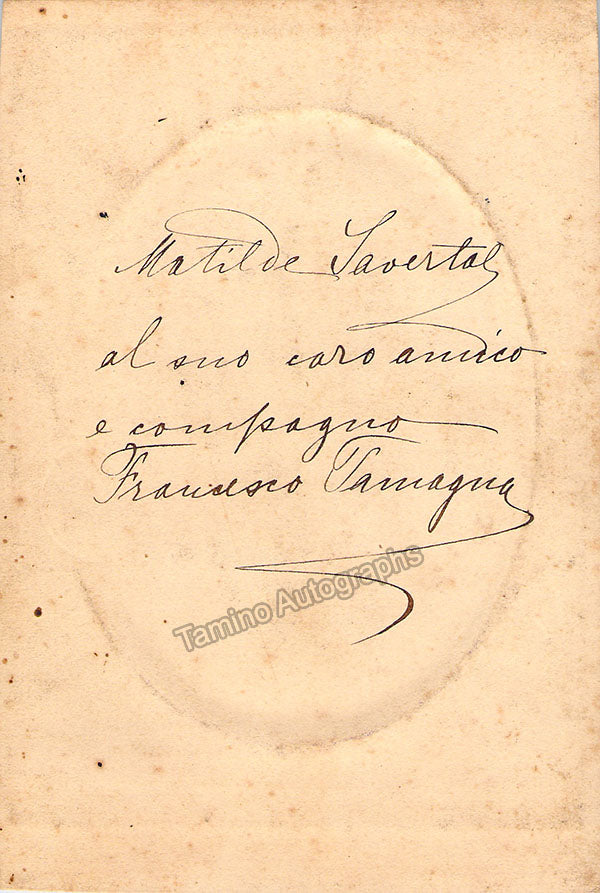 Matilde Savertal
al suo caro amico
e compagno
Francesco Tamagna
Tamino Autographs